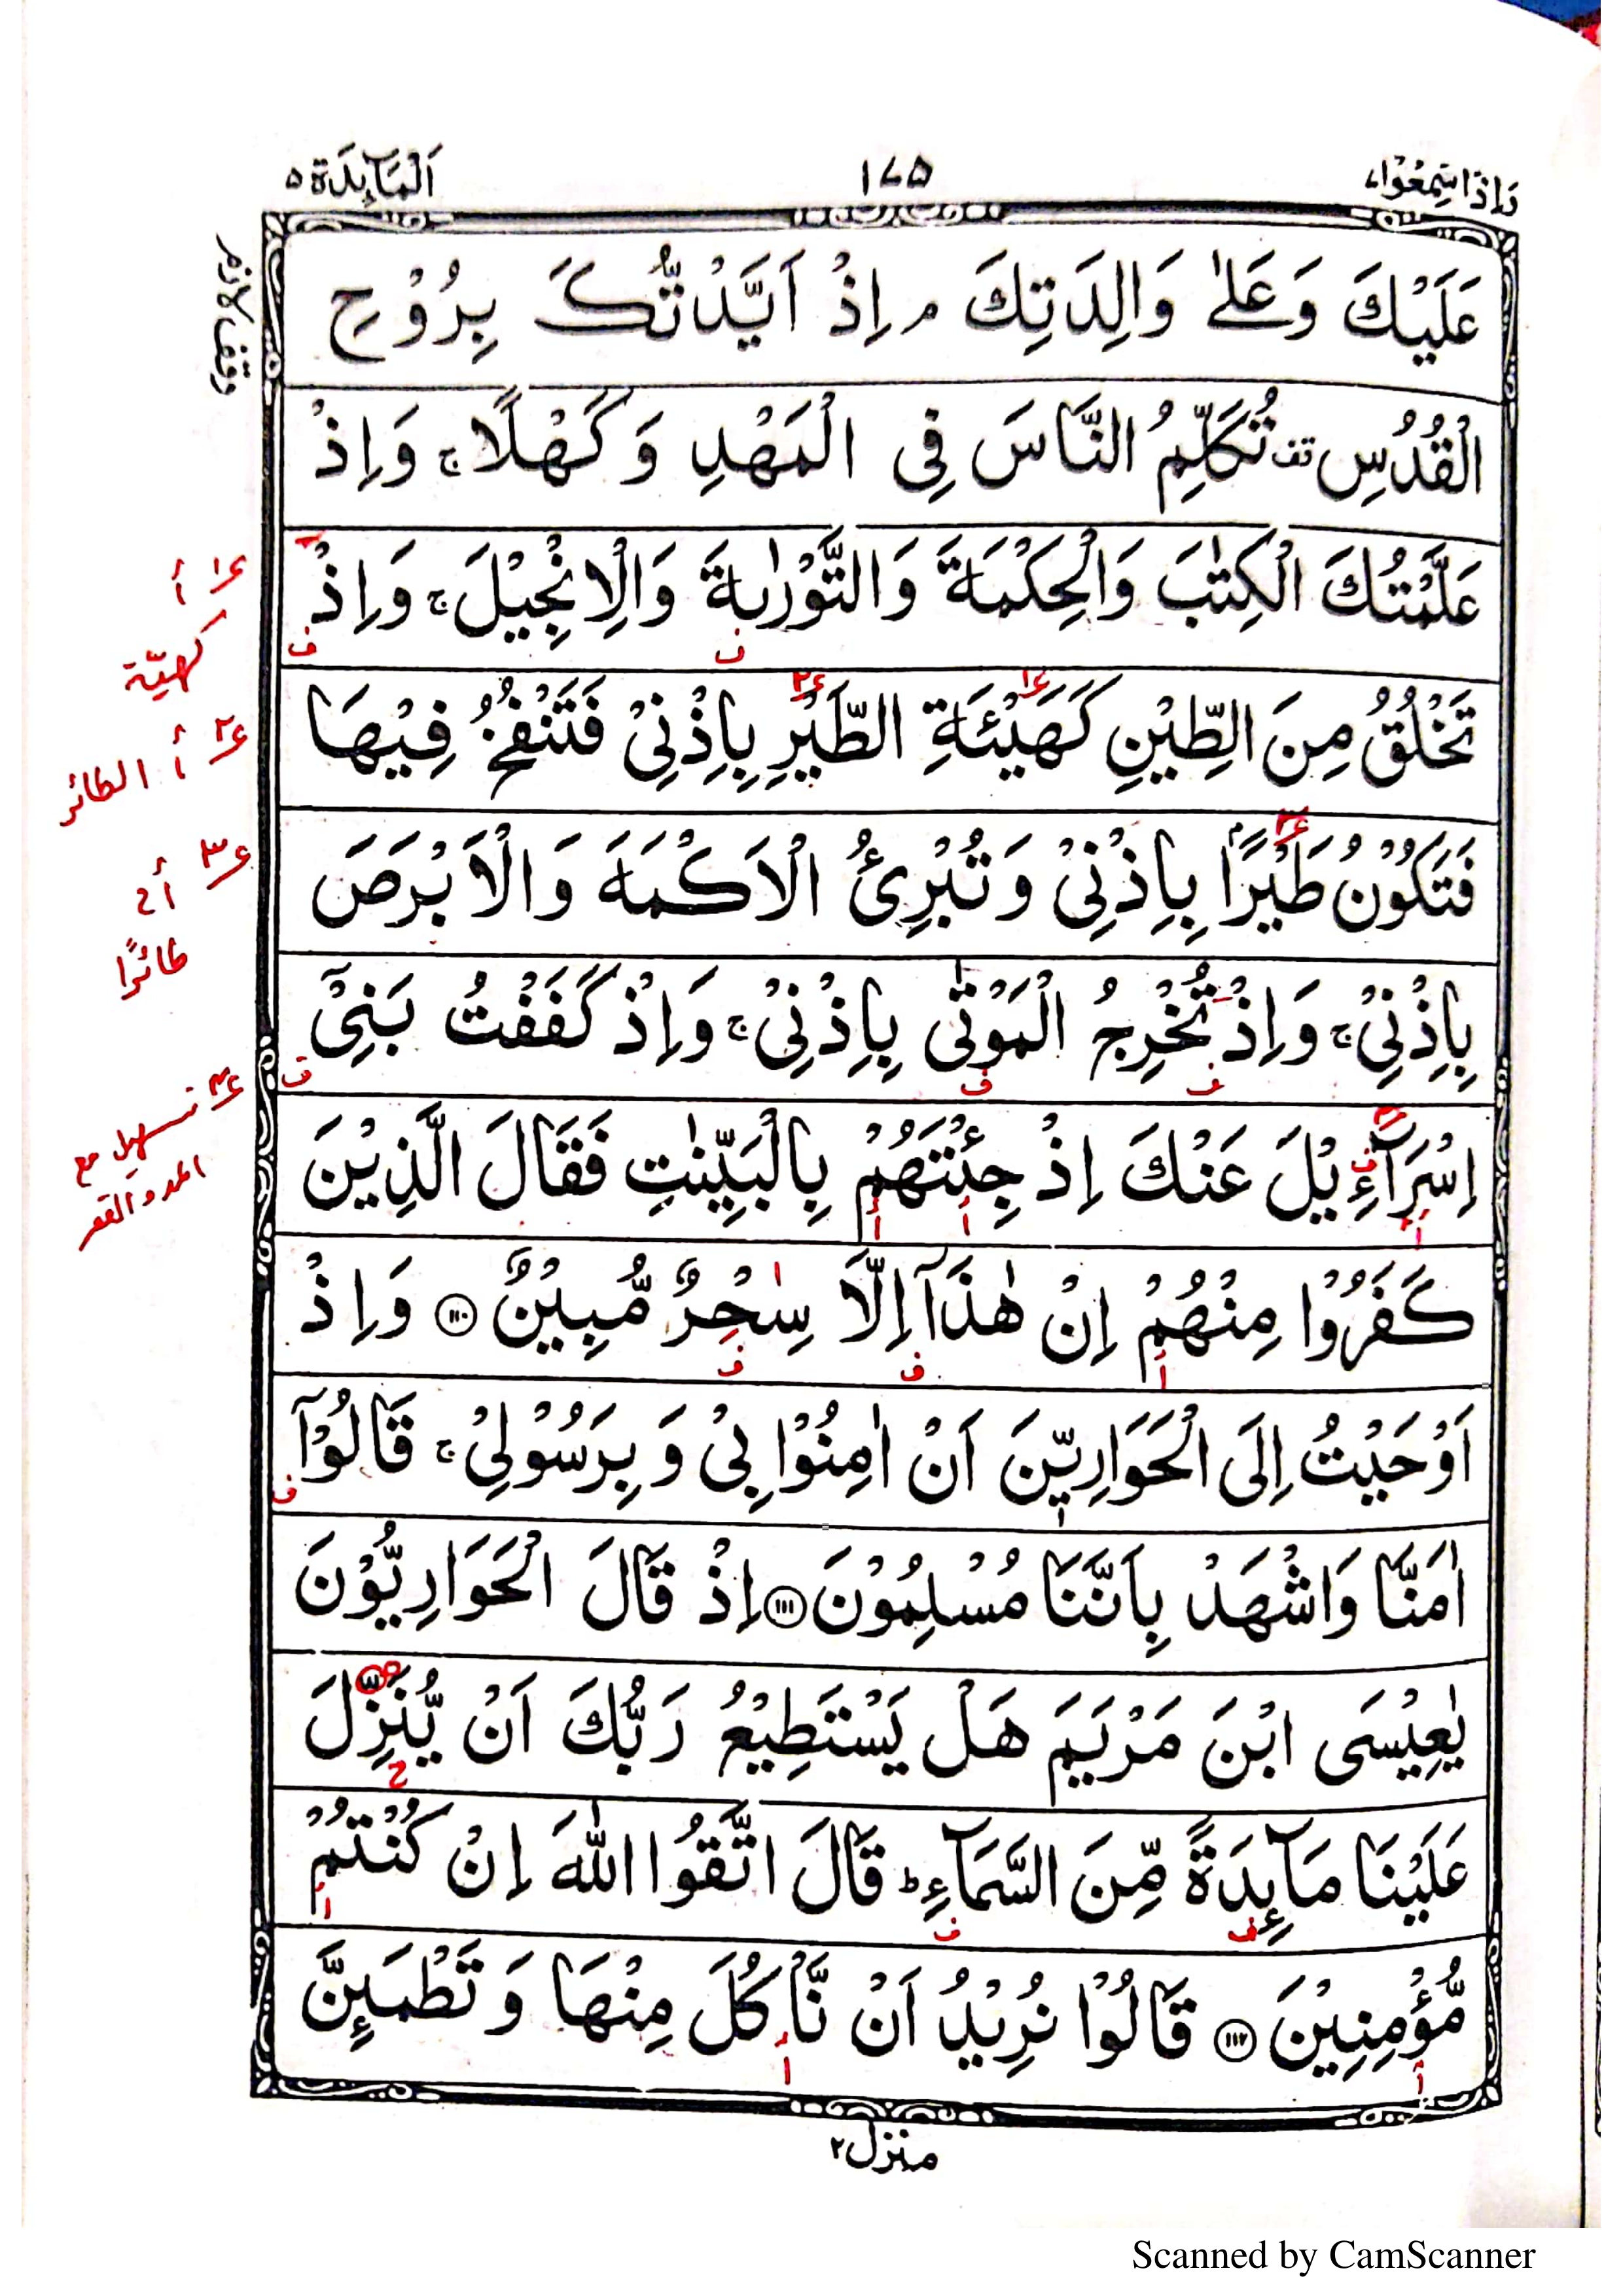 وَاِذَا سَمِعُوْا ٧
١٧٥
اَلْمَآىِٕدَة ٥
وقف لازم
عَلَيْكَ وَعَلٰى وَالِدَتِكَ ۘ اِذْ اَيَّدْتُّكَ بِرُوْحِ
الْقُدُسِ تف تُكَلِّمُ النَّاسَ فِى الْمَهْدِ وَكَهْلًا ۚ وَاِذْ
عَلَّمْتُكَ الْكِتٰبَ وَالْحِكْمَةَ وَالتَّوْرٰىةَ وَالْاِنْجِيْلَ ۚ وَاِذْ
تَخْلُقُ مِنَ الطِّيْنِ كَهَيْـَٔةِ الطَّيْرِ بِاِذْنِىْ فَتَنْفُخُ فِيْهَا
فَتَكُوْنُ طَيْرًۢا بِاِذْنِىْ وَتُبْرِئُ الْاَكْمَهَ وَالْاَبْرَصَ
بِاِذْنِىْ ۚ وَاِذْ تُخْرِجُ الْمَوْتٰى بِاِذْنِىْ ۚ وَاِذْ كَفَفْتُ بَنِىْٓ
اِسْرَآءِيْلَ عَنْكَ اِذْ جِئْتَهُمْ بِالْبَيِّنٰتِ فَقَالَ الَّذِيْنَ
كَفَرُوْا مِنْهُمْ اِنْ هٰذَآ اِلَّا سِحْرٌ مُّبِيْنٌ ۝١١٠ وَاِذْ
اَوْحَيْتُ اِلَى الْحَوَارِيّٖنَ اَنْ اٰمِنُوْا بِىْ وَبِرَسُوْلِىْ ۚ قَالُوْٓا
اٰمَنَّا وَاشْهَدْ بِاَنَّنَا مُسْلِمُوْنَ ۝١١١ اِذْ قَالَ الْحَوَارِيُّوْنَ
يٰعِيْسَى ابْنَ مَرْيَمَ هَلْ يَسْتَطِيْعُ رَبُّكَ اَنْ يُّنَزِّلَ
عَلَيْنَا مَآىِٕدَةً مِّنَ السَّمَآءِ ؕ قَالَ اتَّقُوا اللّٰهَ اِنْ كُنْتُمْ
مُّؤْمِنِيْنَ ۝١١٢ قَالُوْا نُرِيْدُ اَنْ نَّاْكُلَ مِنْهَا وَتَطْمَىِٕنَّ
منزل ٢
ع١ أ
كهيّة
ع٢ أ الطائر
ع٣ أ ح
طائرًا
ع٤ تسهيل مع
المد والقصر
Scanned by CamScanner